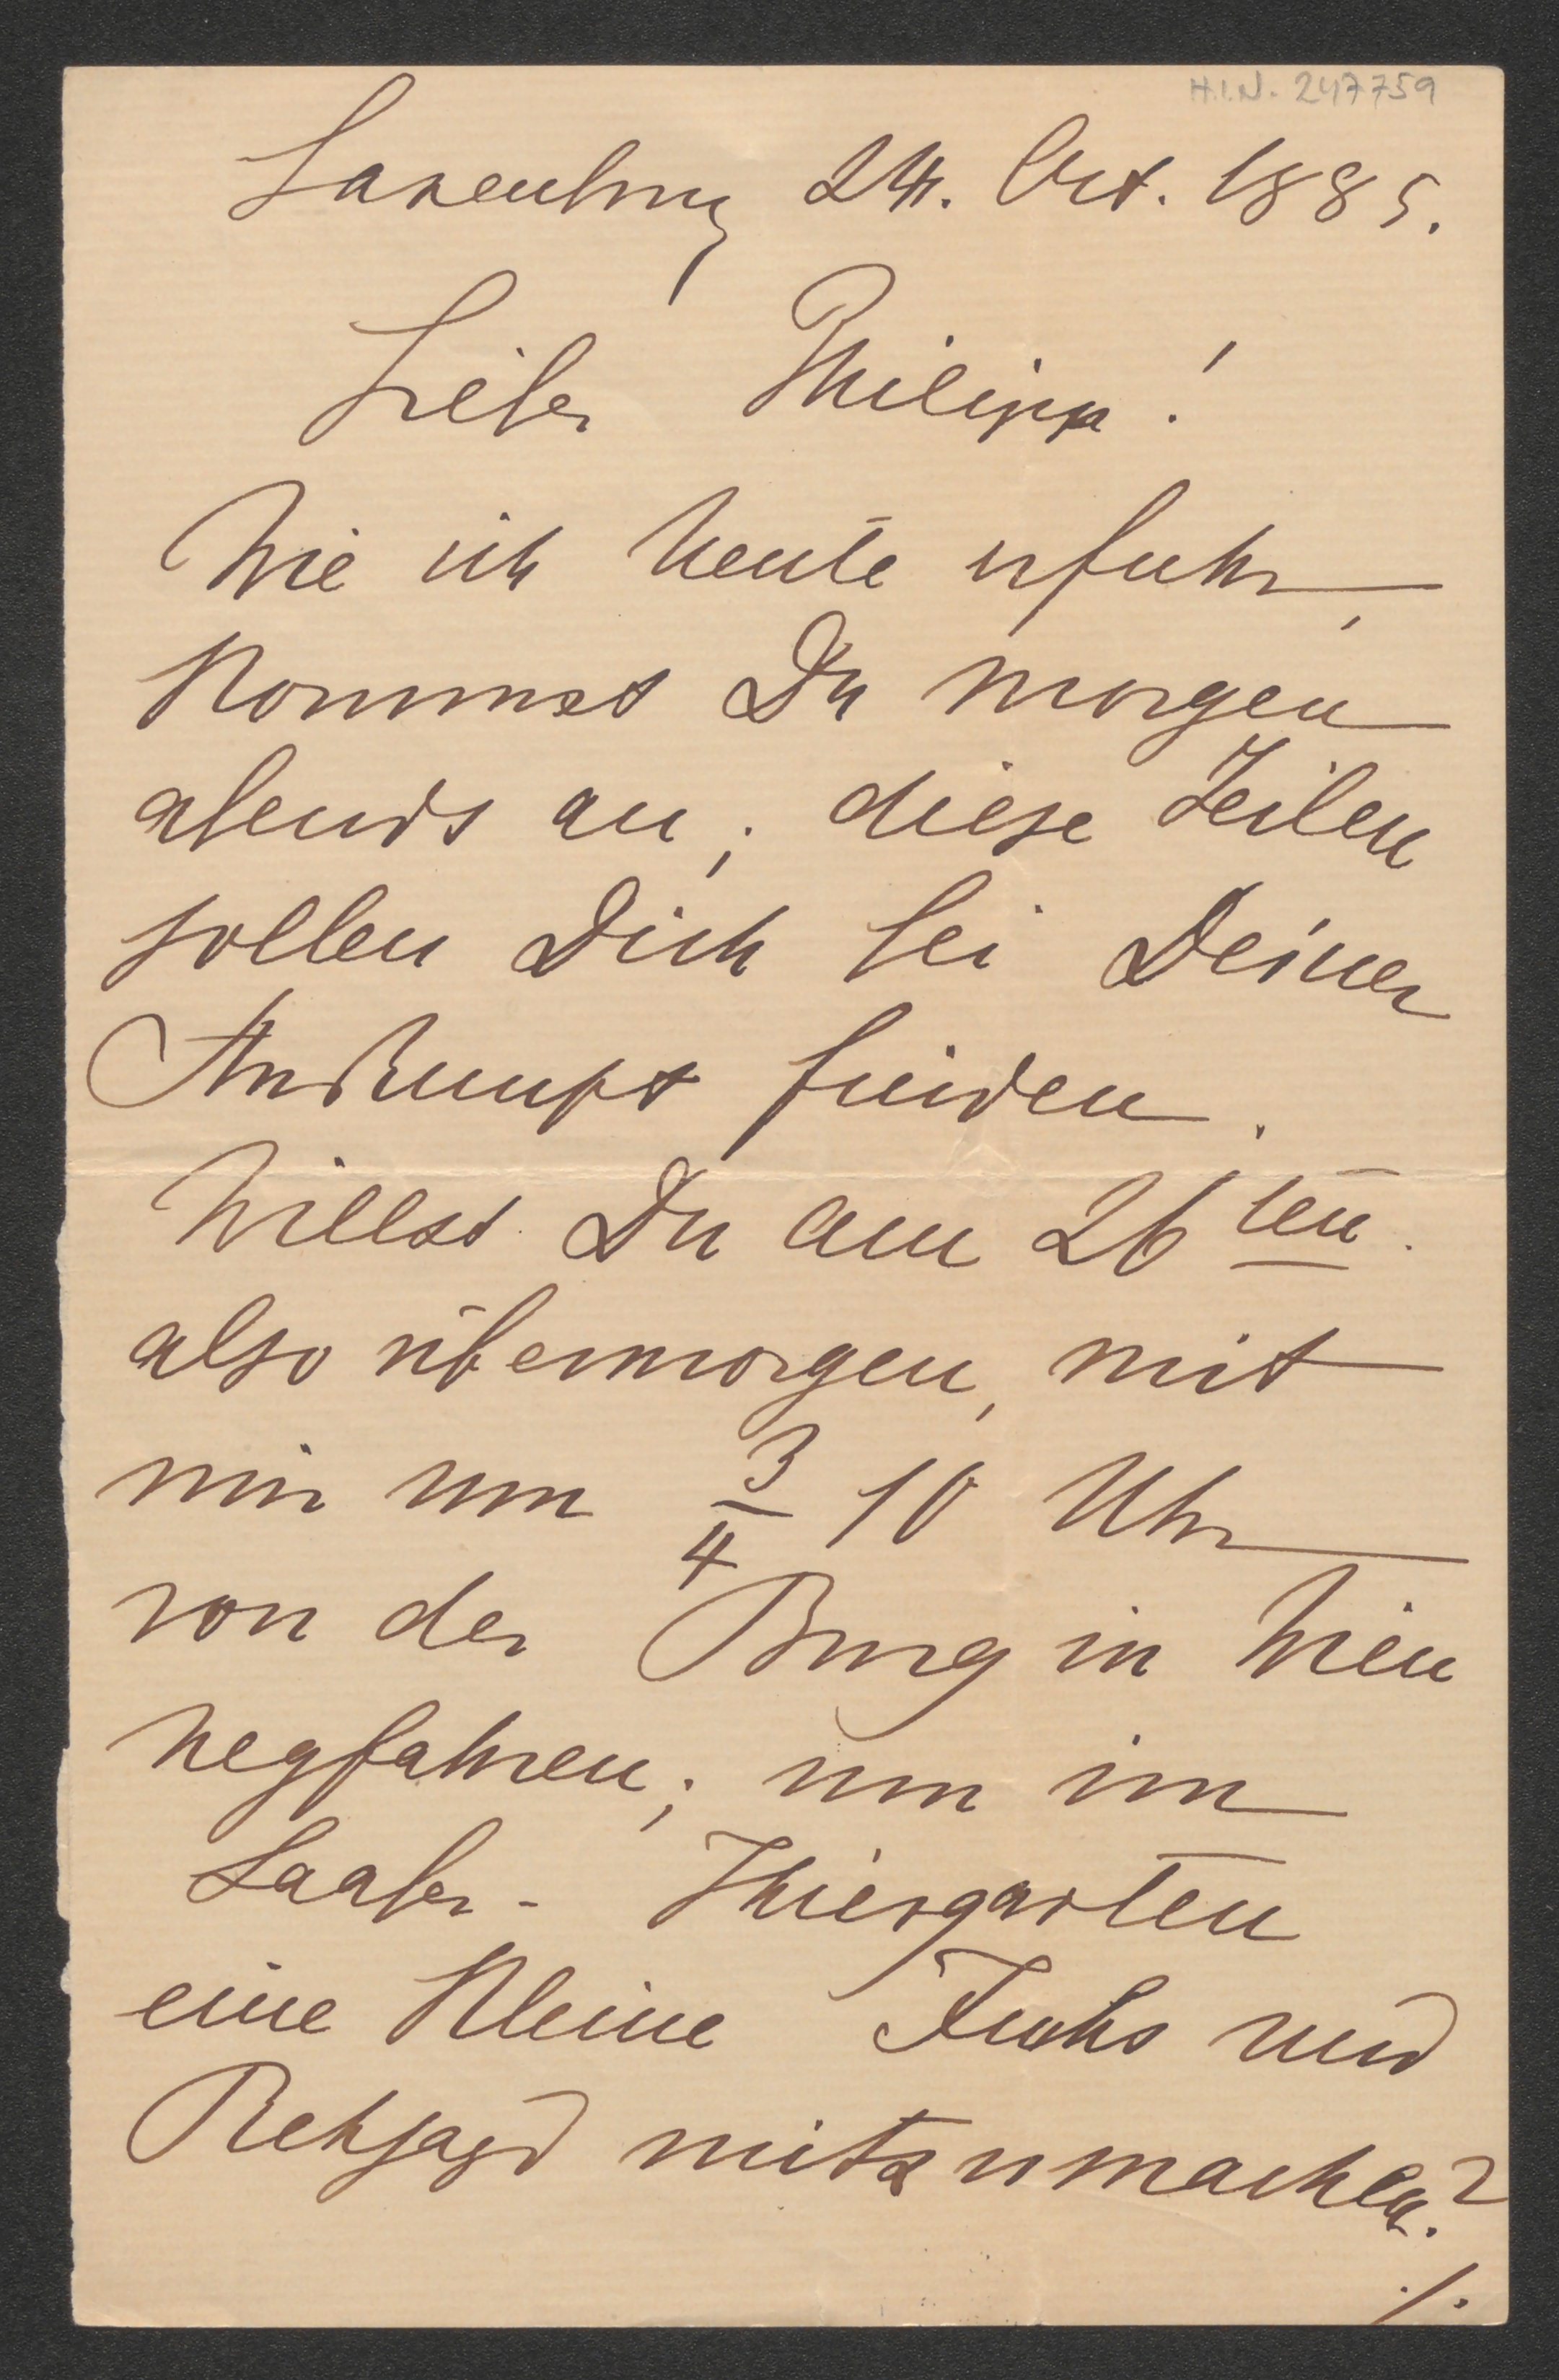 H.I.N. 247759
Laxenburg 24. Oct. 1885.
Lieber Philipp!
Wie ich heute erfuhr,
kommst Du morgen
abends an; diese Zeilen
sollen Dich bei Deiner
Ankunft finden.
Willst Du am 26ten.
also übermorgen, mit
mir um 3/4 10 Uhr
von der Burg in Wien
wegfahren; um im
Laaber-Thiergarten
eine kleine Fuchs und
Rehjagd mitzumachen?
./.